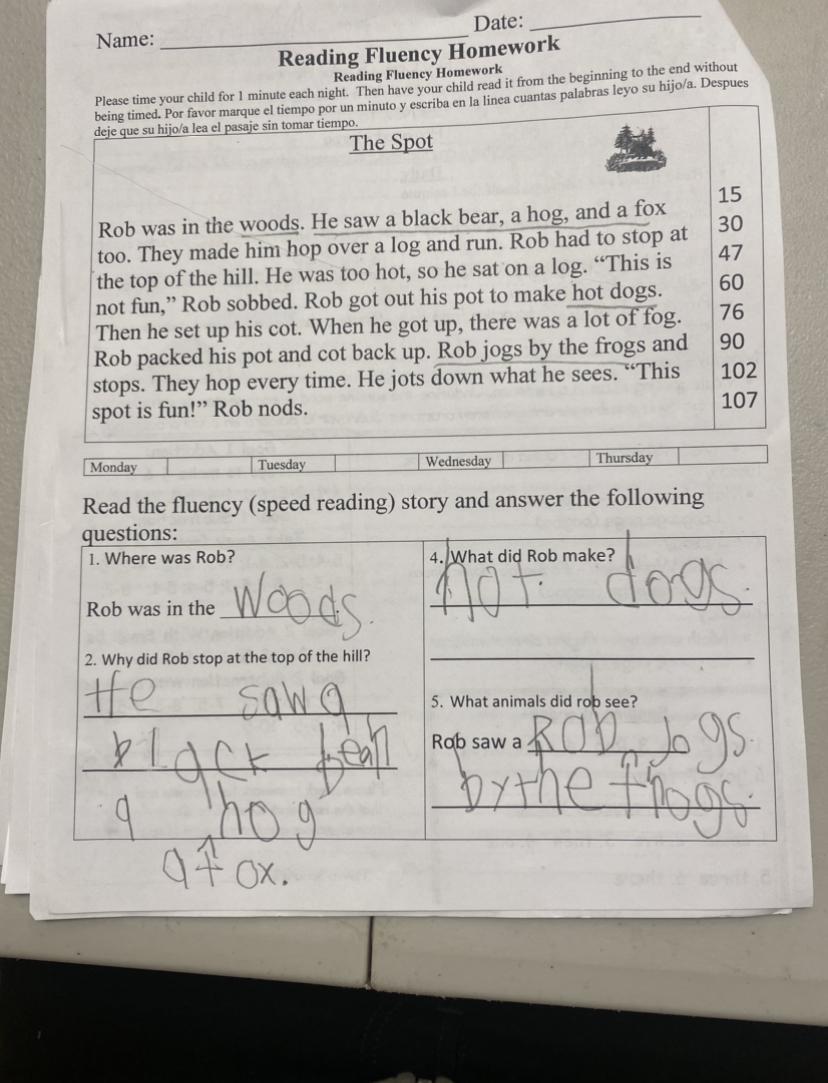 Name: Date:
Reading Fluency Homework
Reading Fluency Homework
Please time your child for 1 minute each night. Then have your child read it from the beginning to the end without
being timed. Por favor marque el tiempo por un minuto y escriba en la linea cuantas palabras leyo su hijo/a. Despues
deje que su hijo/a lea el pasaje sin tomar tiempo.
The Spot
Rob was in the woods. He saw a black bear, a hog, and a fox 15
too. They made him hop over a log and run. Rob had to stop at 30
the top of the hill. He was too hot, so he sat on a log. “This is 47
not fun,” Rob sobbed. Rob got out his pot to make hot dogs. 60
Then he set up his cot. When he got up, there was a lot of fog. 76
Rob packed his pot and cot back up. Rob jogs by the frogs and 90
stops. They hop every time. He jots down what he sees. “This 102
spot is fun!” Rob nods. 107
Monday Tuesday Wednesday Thursday
Read the fluency (speed reading) story and answer the following
questions:
1. Where was Rob?
Rob was in the Woods.
2. Why did Rob stop at the top of the hill?
He saw a
black bear
a hog
a fox.
4. What did Rob make?
hot dogs.
5. What animals did rob see?
Rob saw a ROB jogs.
by the frogs.